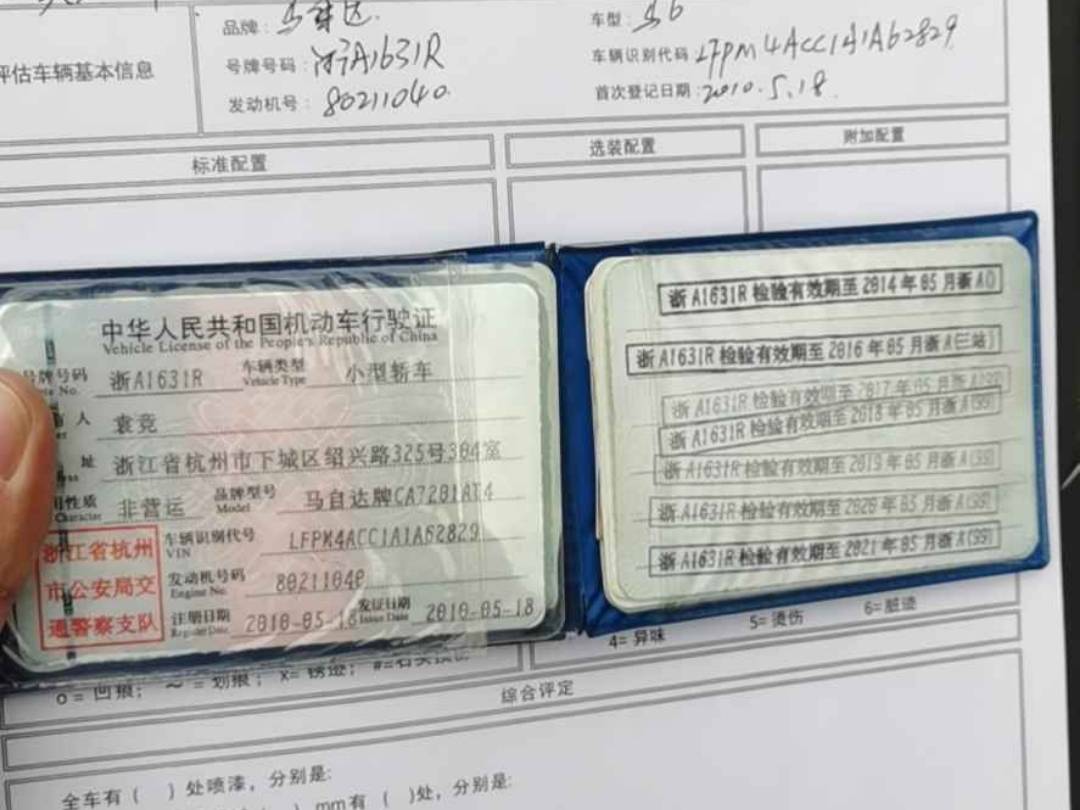 品牌：马自达
车型：马6
评估车辆基本信息
号牌号码：浙A1631R
车辆识别代码 LFPM4ACC1A1A62829
发动机号：80211040
首次登记日期：2010.5.18
标准配置
选装配置
附加配置
中华人民共和国机动车行驶证
Vehicle License of the People's Republic of China
号牌号码 浙A1631R 车辆类型 小型轿车
No. Vehicle Type
人 袁竞
址 浙江省杭州市下城区绍兴路325号304室
用性质 非营运 品牌型号 马自达牌CA7201AT4
Character Model
浙江省杭州
市公安局交
通警察支队
车辆识别代号 LFPM4ACC1A1A62829
VIN
发动机号码 80211040
Engine No.
注册日期 2010-05-18 发证日期 2010-05-18
Register Date Issue Date
浙A1631R 检验有效期至2014年05月浙A()
浙A1631R 检验有效期至2016年05月浙A(三站)
浙A1631R 检验有效期至2017年05月浙A(99)
浙A1631R 检验有效期至2018年05月浙A(99)
浙A1631R 检验有效期至2019年05月浙A(99)
浙A1631R 检验有效期至2020年05月浙A(99)
浙A1631R 检验有效期至2021年05月浙A(99)
4=异味
5=烫伤
6=脏迹
o=凹痕； ～=划痕； x=锈迹；
综合评定
全车有（ ）处喷漆，分别是:
mm有（ ）处，分别是: